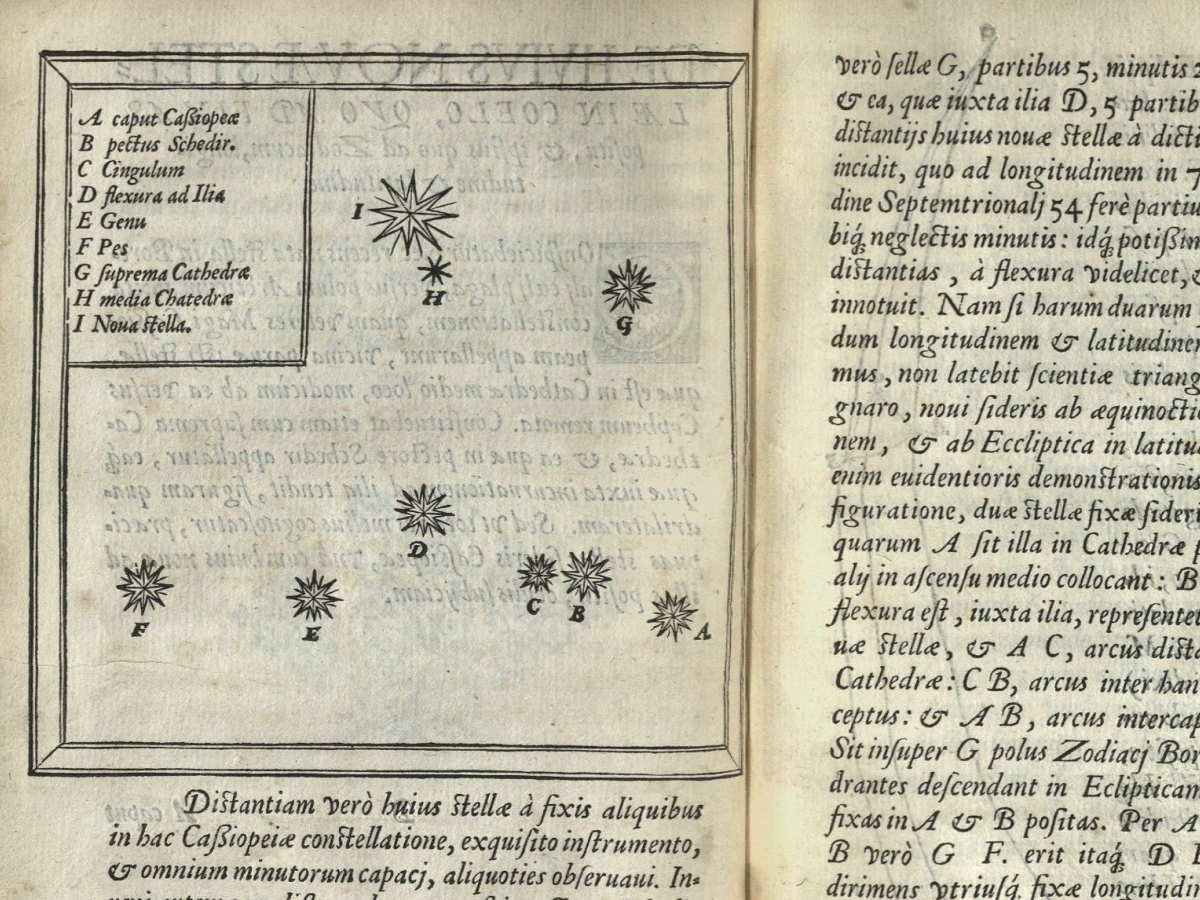 A caput Caſsiopeæ
B pectus Schedir.
C Cingulum
D flexura ad Ilia
E Genu
F Pes
G ſuprema Cathedræ
H media Chatedræ
I Noua ſtella.
I
H
G
D
F
E
C
B
A
Diſtantiam verò huius ſtellæ à fixis aliquibus
in hac Caſsiopeiæ conſtellatione, exquiſito inſtrumento,
& omnium minutorum capacj, aliquoties obſeruaui. In-
verò ſellæ G, partibus 5, minutis
& ea, quæ iuxta ilia D, 5 partib
diſtantijs huius nouæ ſtellæ à dicti
incidit, quo ad longitudinem in 7
dine Septemtrionalj 54 ferè partiu
biq́ neglectis minutis: idq́ potiſsim
diſtantias, à flexura videlicet, &
innotuit. Nam ſi harum duarum
dum longitudinem & latitudinem
mus, non latebit ſcientiæ triang
gnaro, noui ſideris ab æquinoctio
nem, & ab Eccliptica in latitu
enim euidentioris demonſtrationis
figuratione, duæ ſtellæ fixæ ſideri
quarum A ſit illa in Cathedræ p
alij in aſcenſu medio collocant: B
flexura eſt, iuxta ilia, repreſentet
uæ ſtellæ, & A C, arcus diſta
Cathedræ: C B, arcus inter han
ceptus: & A B, arcus intercap
Sit inſuper G polus Zodiacj Bor
drantes deſcendant in Eclipticam
fixas in A & B poſitas. Per A
B verò G F. erit itaq́ D E
dirimens vtriuſq́ fixæ longitudin